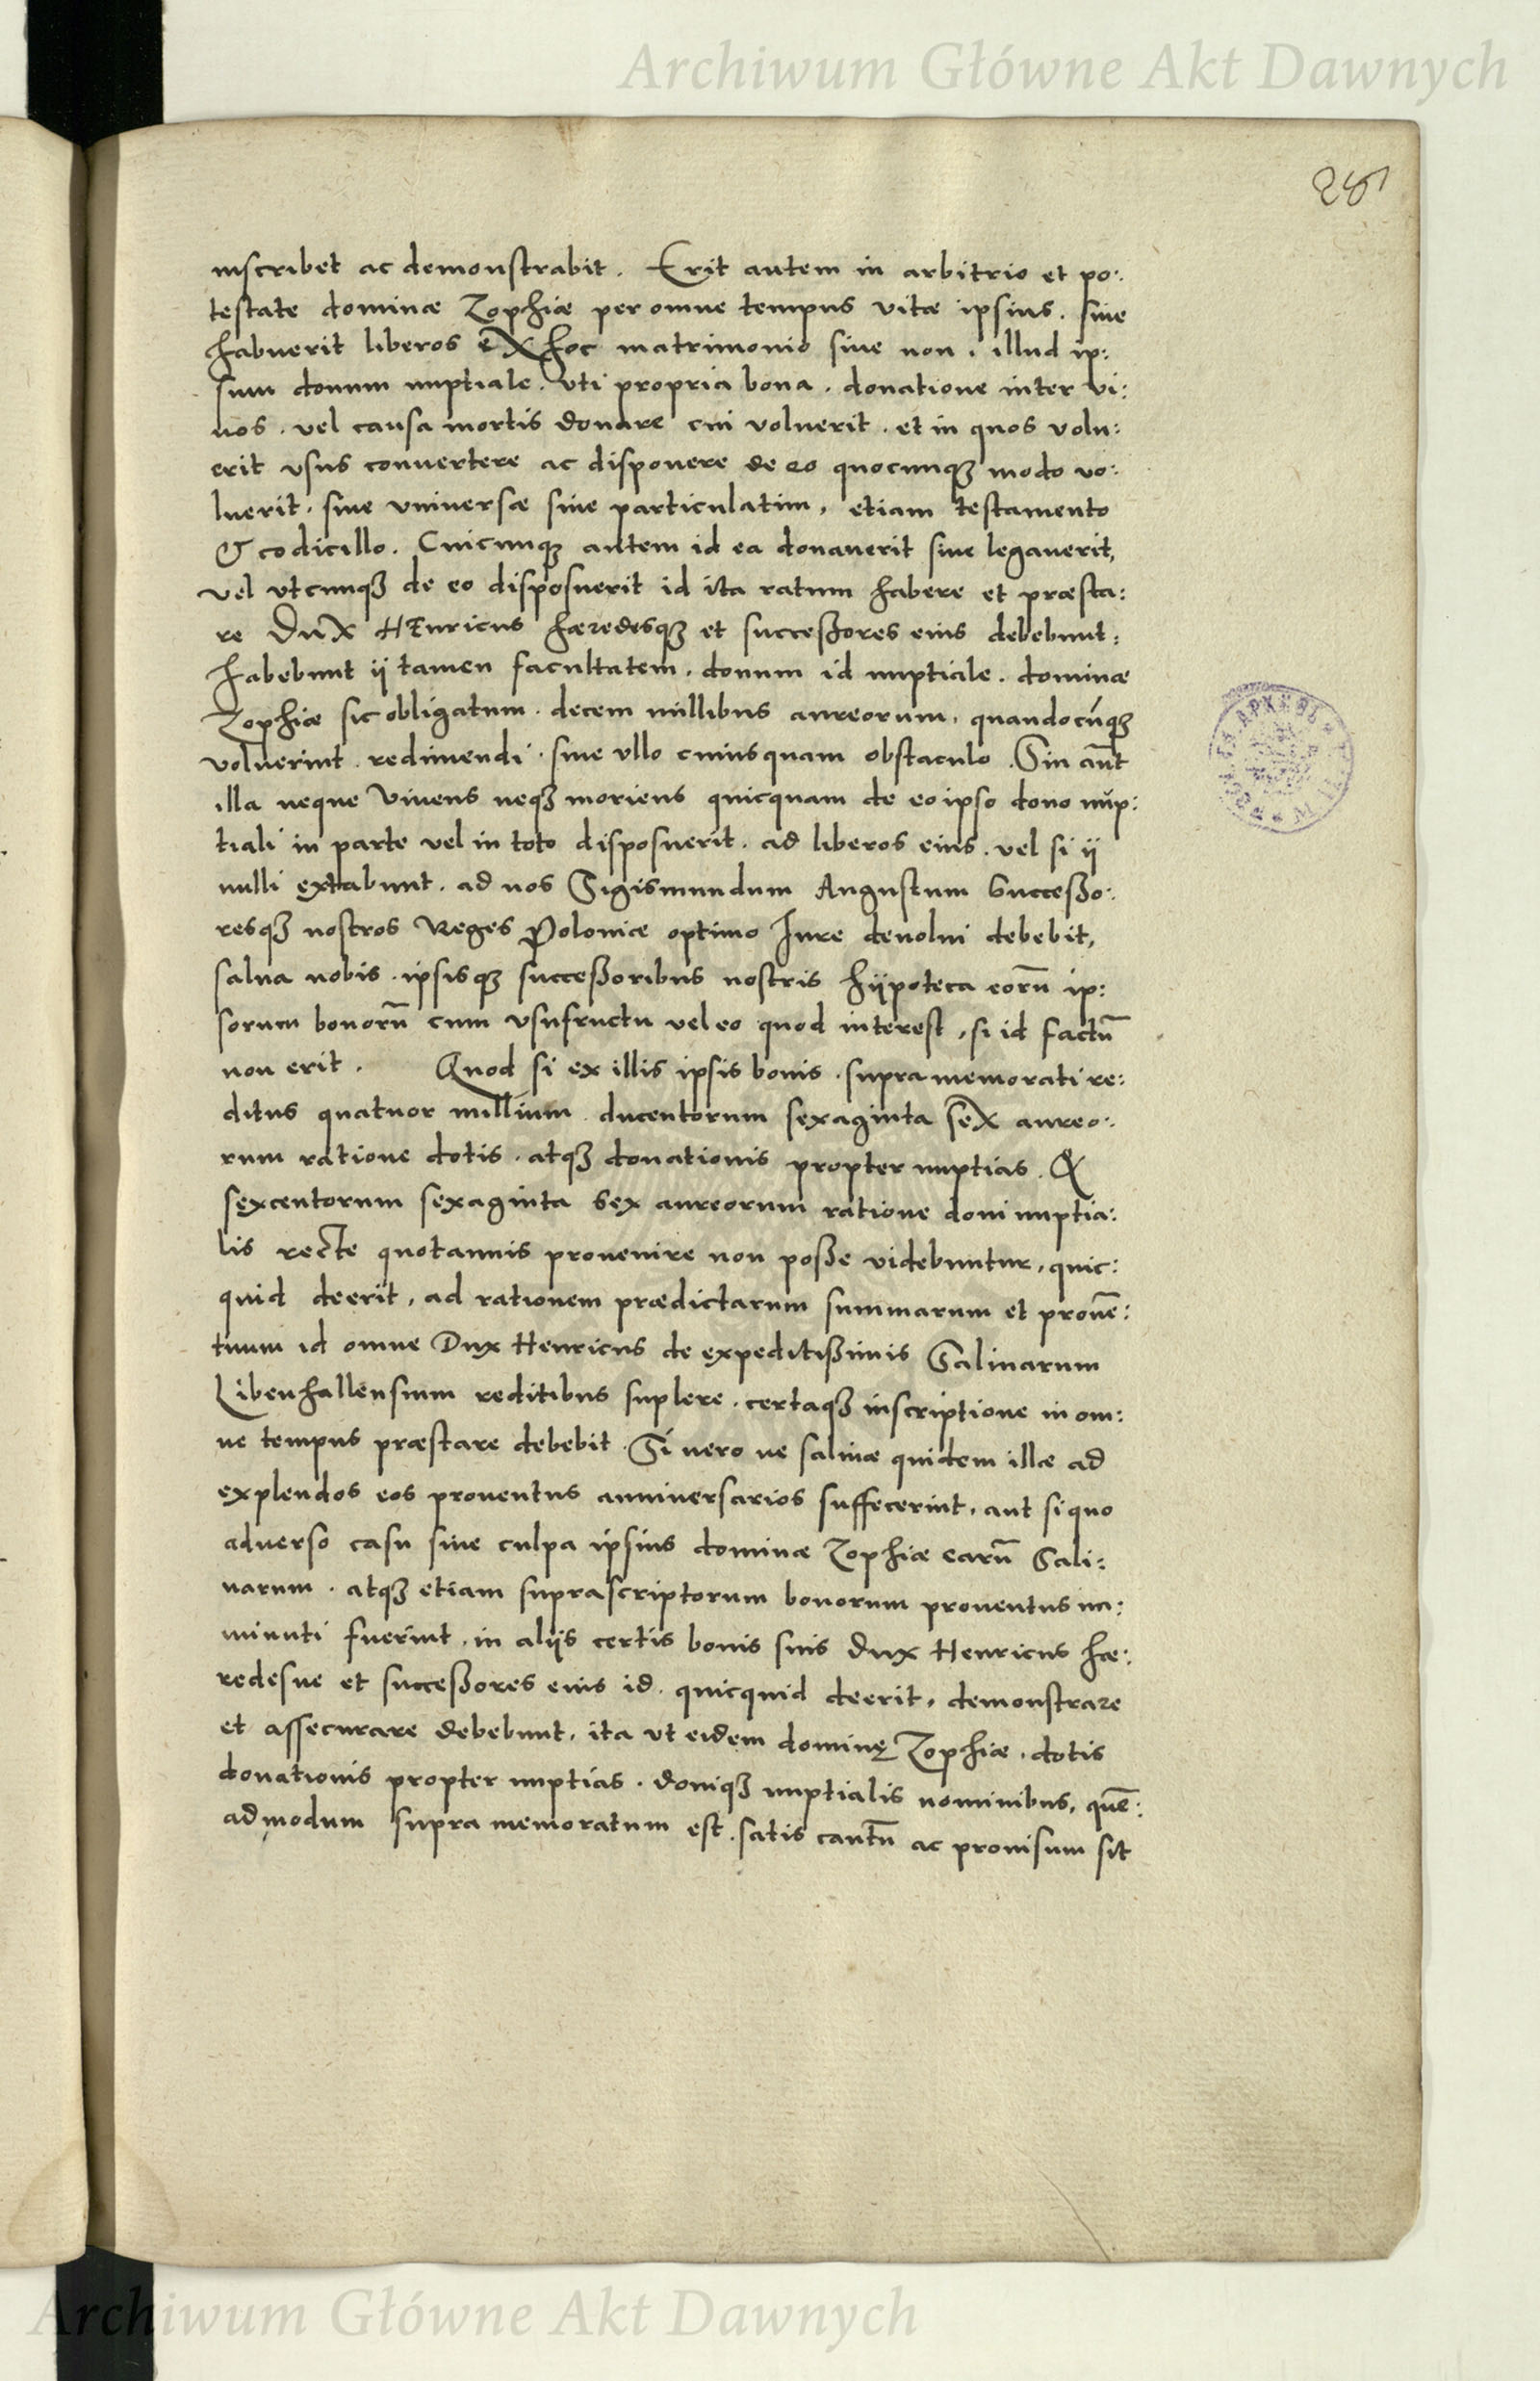 Archiwum Główne Akt Dawnych
inscribet ac demonstrabit. Erit autem in arbitrio et po:
testate dominæ Zophiæ per omne tempus vitæ ipsius. siue
habuerit liberos eX hoc matrimonio siue non. illud ip:
sum donum nuptiale. vti propria bona. donatione inter vi:
uos. vel causa mortis donare cui voluerit. et in quos volu:
erit vsus conuertere ac disponere de eo quocunqꝫ modo vo:
luerit. siue vniuersæ siue particulatim, etiam testamento
& codicillo. Cuicunqꝫ autem id ea donauerit siue legauerit,
vel vtcunqꝫ de eo disposuerit id ita ratum habere et præsta:
re DuX HEnricus hæredesqꝫ et succeßores eius debebunt:
habebunt ij tamen facultatem. donum id nuptiale. dominæ
Zophiæ sic obligatum. decem millibus aureorum, quandocūqꝫ
voluerint. redimendi. sine vllo cuiusquam obstaculo. Sin aūt
illa neque viuens neqꝫ moriens quicquam de eo ipso dono nup:
tiali in parte vel in toto disposuerit. ad liberos eius. vel si ij
nulli extabunt. ad nos Sigismundum Augustum Succeßo:
resqꝫ nostros Reges Poloniæ optimo Iure deuolui debebit,
salua nobis. ipsisqꝫ succeßoribus nostris hÿpoteca eorū ip:
sorum bonorū cum vsufructu vel eo quod interest, si id factū
non erit. Quod si ex illis ipsis bonis. supra memorati re:
ditus quatuor millium ducentorum sexaginta seX aureo:
rum ratione dotis. atqꝫ donationis propter nuptias. &
sexcentorum sexaginta sex aureorum ratione doni nuptia:
lis recte quotannis prouenire non poße videbuntur, quic:
quid deerit, ad rationem prædictarum summarum et prouē:
tuum id omne Dux Henricus de expeditißimis Salinarum
Libenhallensium reditibus suplere. certaqꝫ inscriptione in om:
ne tempus præstare debebit. Si vero ne salinæ quidem illæ ad
explendos eos prouentus anniuersarios suffecerint, aut si quo
aduerso casu sine culpa ipsius dominæ Zophiæ earū Sali:
narum. atqꝫ etiam suprascriptorum bonorum prouentus im:
minuti fuerint, in alijs certis bonis suis Dux Henricus hæ:
redesue et succeßores eius id. quicquid deerit, demonstrare
et assecurare debebunt, ita vt eidem dominę Zophiæ. dotis
donationis propter nuptias. doniqꝫ nuptialis nominibus, quē:
admodum supra memoratum est. satis cautū ac prouisum sit
Archiwum Główne Akt Dawnych